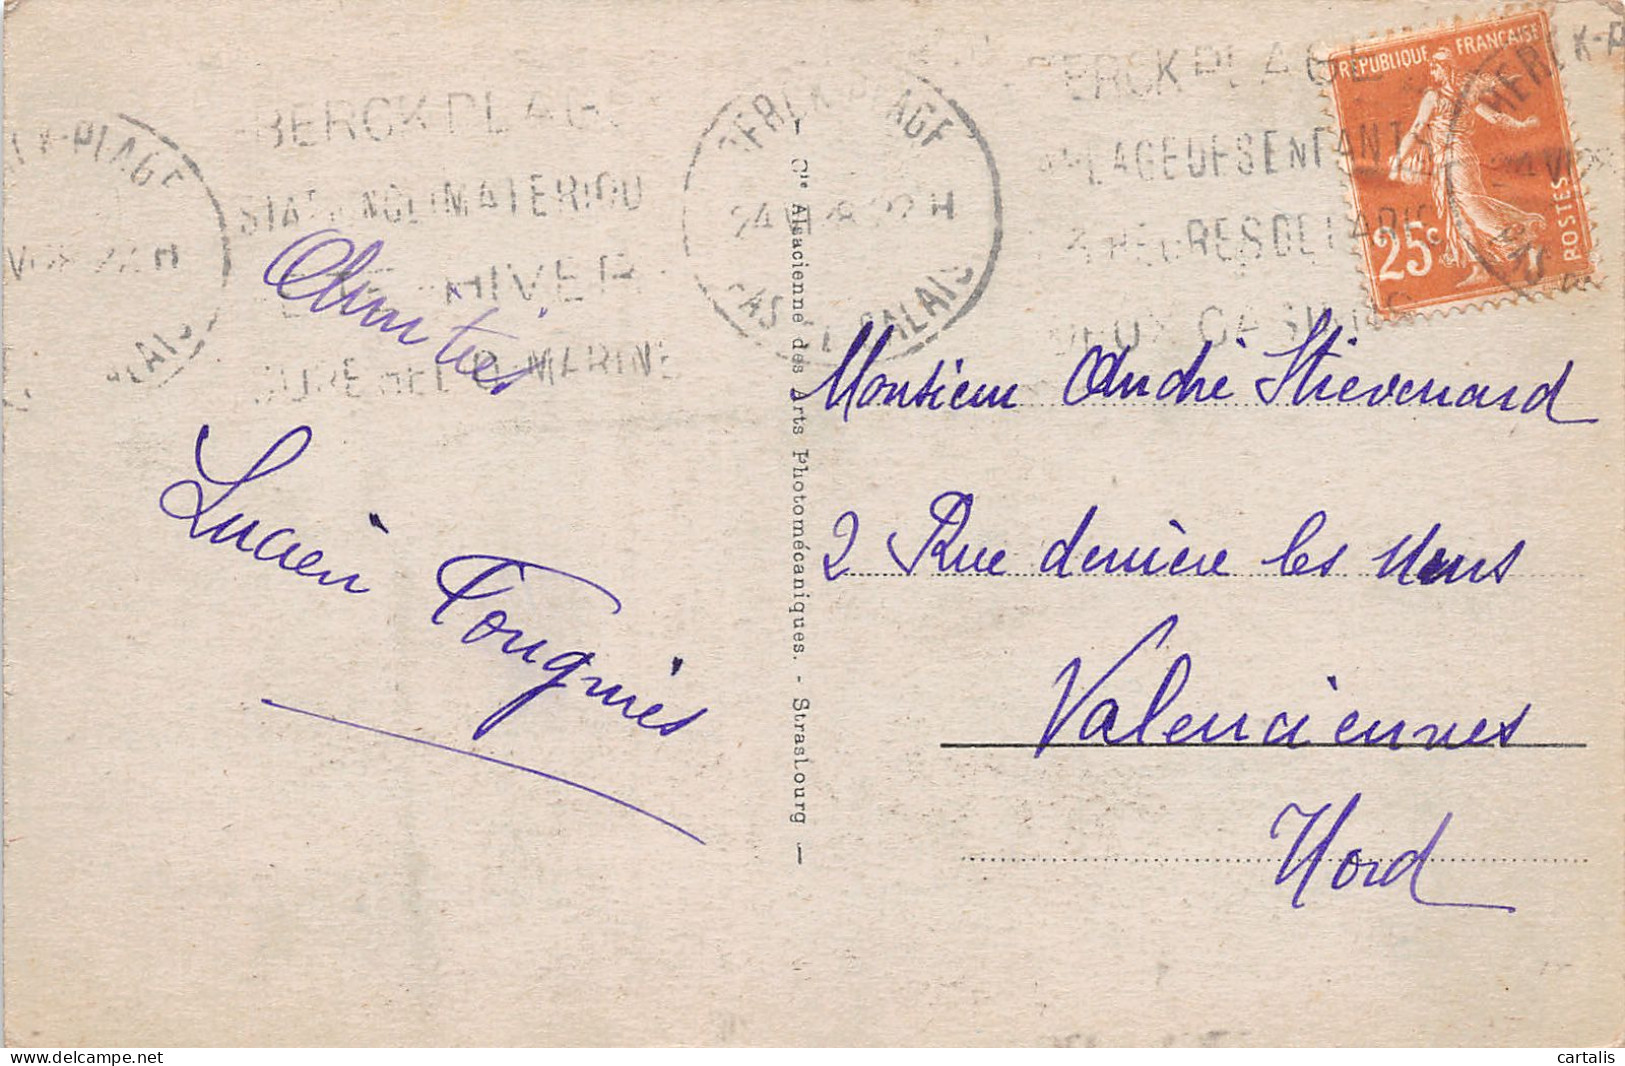 BERCK PLAGE
STATION CLIMATERIQU
ÉTÉ - HIVER
CURE HELIO MARINE
BERCK-PLAGE
24 VI 22 H
PAS DE CALAIS
BERCK PLAGE
PLAGE DES ENFANTS
3 HEURES DE PARIS
DEUX CASINOS
REPUBLIQUE FRANÇAISE
25c
POSTES
Amitiés
Lucien Fougniés
Cie Alsacienne des Arts Photomécaniques. - Strasbourg
Monsieur André Stievenard
2 Rue derrière les Murs
Valenciennes
Nord
cartalis